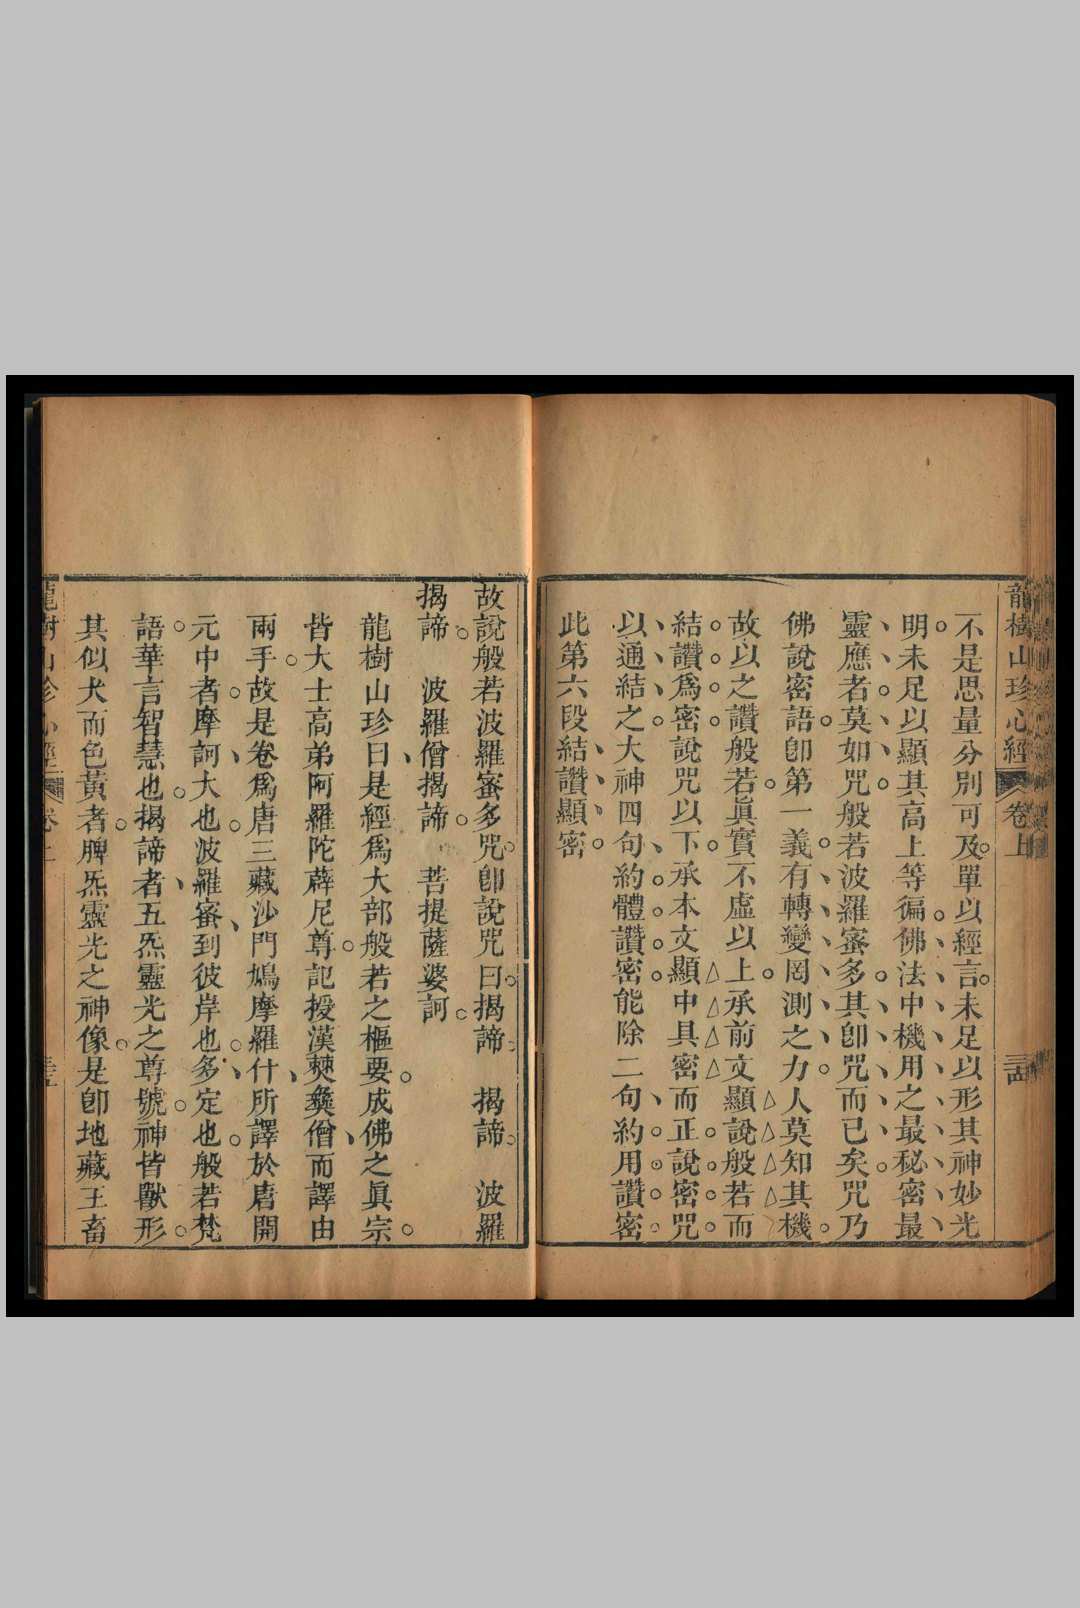 龍樹山珍心經 卷上
不是思量分別可及單以經言未足以形其神妙光
明未足以顯其高上等徧佛法中機用之最秘密最
靈應者莫如咒般若波羅蜜多其卽咒而已矣咒乃
佛說密語卽第一義有轉變罔測之力人莫知其機
故以之讚般若眞實不虛以上承前文顯說般若而
結讚爲密說咒以下承本文顯中具密而正說密咒
以通結之大神四句約體讚密能除二句約用讚密
此第六段結讚顯密
故說般若波羅蜜多咒卽說咒曰揭諦 揭諦 波羅
揭諦 波羅僧揭諦 菩提薩婆訶
龍樹山珍曰是經爲大部般若之樞要成佛之眞宗
皆大士高弟阿羅陀薜尼尊記授漢僰彝僧而譯由
兩手故是卷爲唐三藏沙門鳩摩羅什所譯於唐開
元中者摩訶大也波羅蜜到彼岸也多定也般若梵
語華言智慧也揭諦者五炁靈光之尊號神皆獸形
其似犬而色黃者脾炁靈光之神像是卽地藏王畜